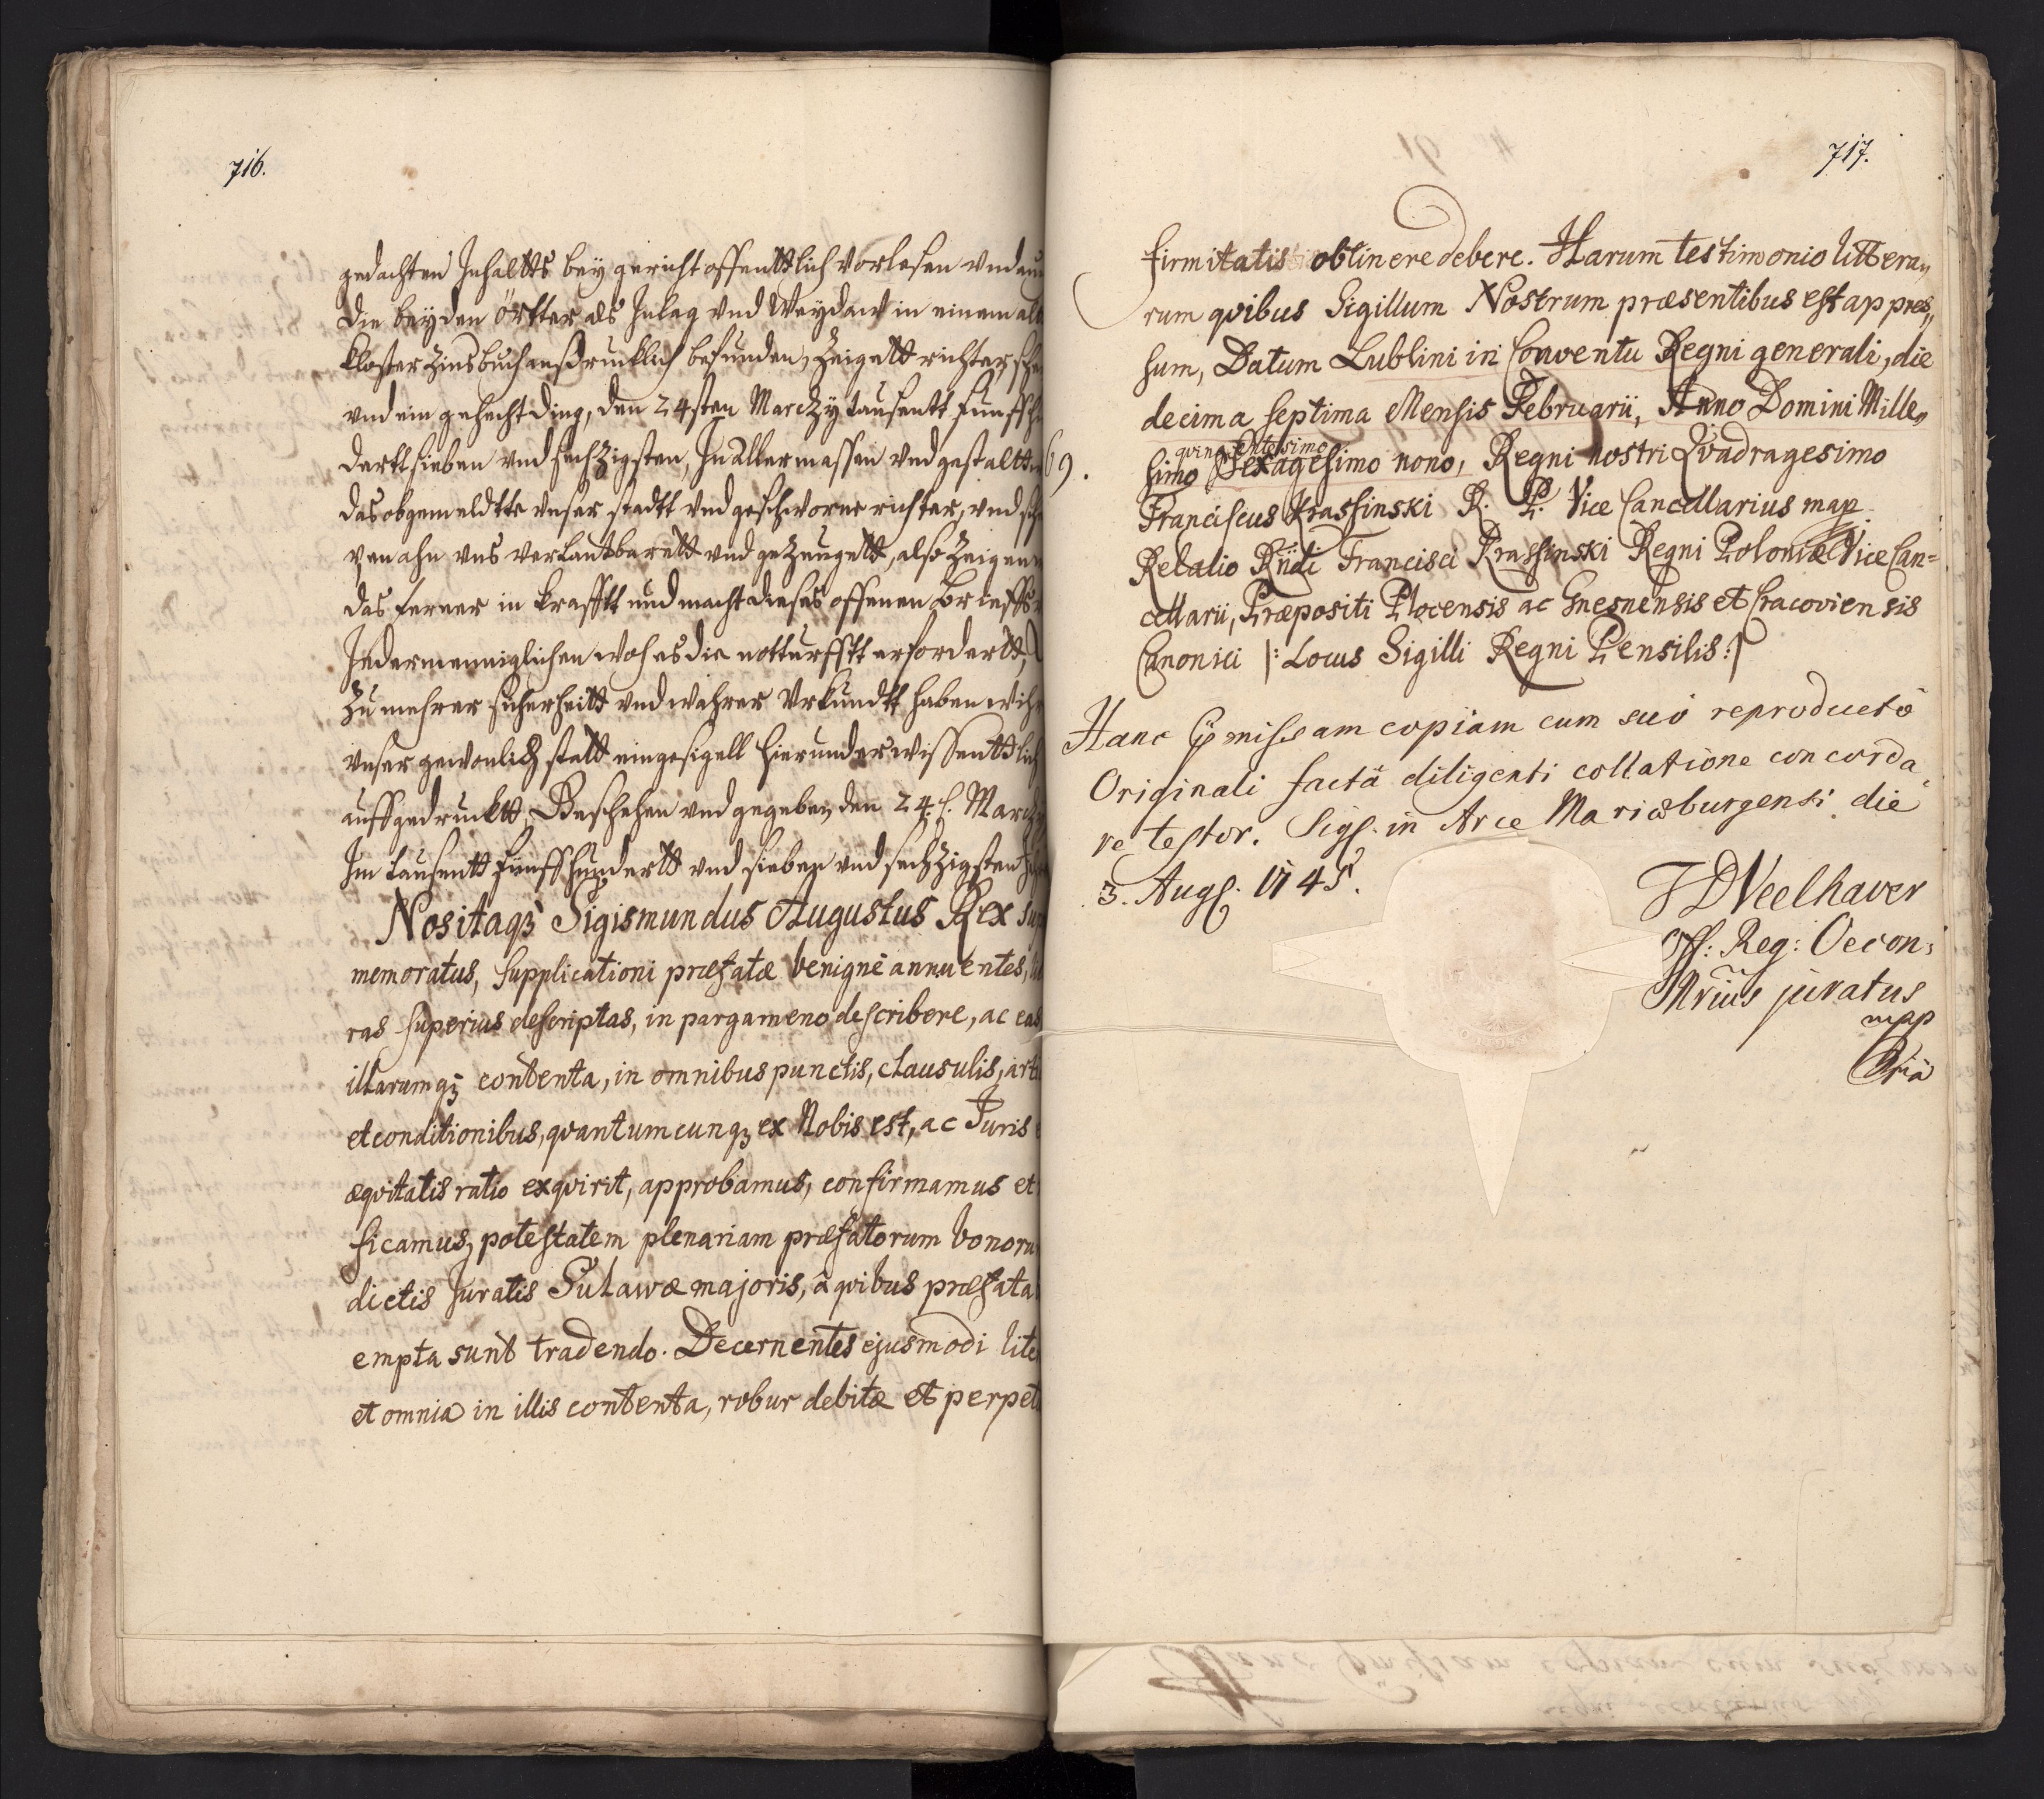 716.
gedachten Inhaltts bey gericht offenttlich vorlesen vnd
die beyden örtter als Inlag vnd Weydaw in einem
kloster Zinsbuch außtrucklich befunden, Zeigett richter,
vnd ein gehecht ding, den 24sten Marczy tausentt
dertt sieben vnd sechzigsten, In aller massen vnd
das obgemeldtte vnser stadtt vnd geschworne richter, vnd
pen ahn vns verlautbarett vnd gezeugett, also Zeigen
das ferner in krafft vnd macht dieses offenen
Jedermenniglichen woh es die notturfftt erfordertt,
Zu mehrer sicherheitt vnd wahrer Vrkundtt haben
vnser gewonlich statt eingesigell hierunder
auffgedrucktt, Geschehen vnd gegeben den 24.
Im tausentt fünffhundertt vnd sieben vnd sechzigsten
Nos itaqz Sigismundus Augustus Rex
memoratus, supplicationi præfatæ benignè annuentes,
ras superius descriptas, in pargameno describere, ac eas
illarumqz contenta, in omnibus punctis, clausulis,
et conditionibus, qvantumcunqz ex Nobis est, ac Juris
æqvitatis ratio exqvirit, approbamus, confirmamus et
ficamus, potestatem plenariam præfatorum
dictis Juratis Sulawæ majoris, à qvibus præfata
empta sunt tradendo. Decernentes ejusmodi
et omnia in illis contenta, robur debitæ et
717.
firmitatis obtinere debere. Harum testimonio littera„
rum qvibus Sigillum Nostrum præsentibus est appres„
sum, Datum Lublini in Conventu Regni generali, die
decima septima Mensis Februarii, Anno Domini Mille„
qvingentesimo
69. simo Sexagesimo nono, Regni nostri Qvadragesimo
Franciscus Krassinski R. P. Vice Cancellarius map
Relatio Rndi Francisci Krassinski Regni Poloniæ Vice Can=
cellarii, Præpositi Plocensis ac Gnesnensis et Cracoviensis
Canonici |: Locus Sigilli Regni Pensilis :|
Hanc missam copiam cum suo reproducto
Originali factâ diligenti collatione concorda„
re testor. Sigs. in Arce Mariæburgensi die
3. Augs. 1745.
Veelhaver
Off: Reg: Oecon:
juratus
mpp